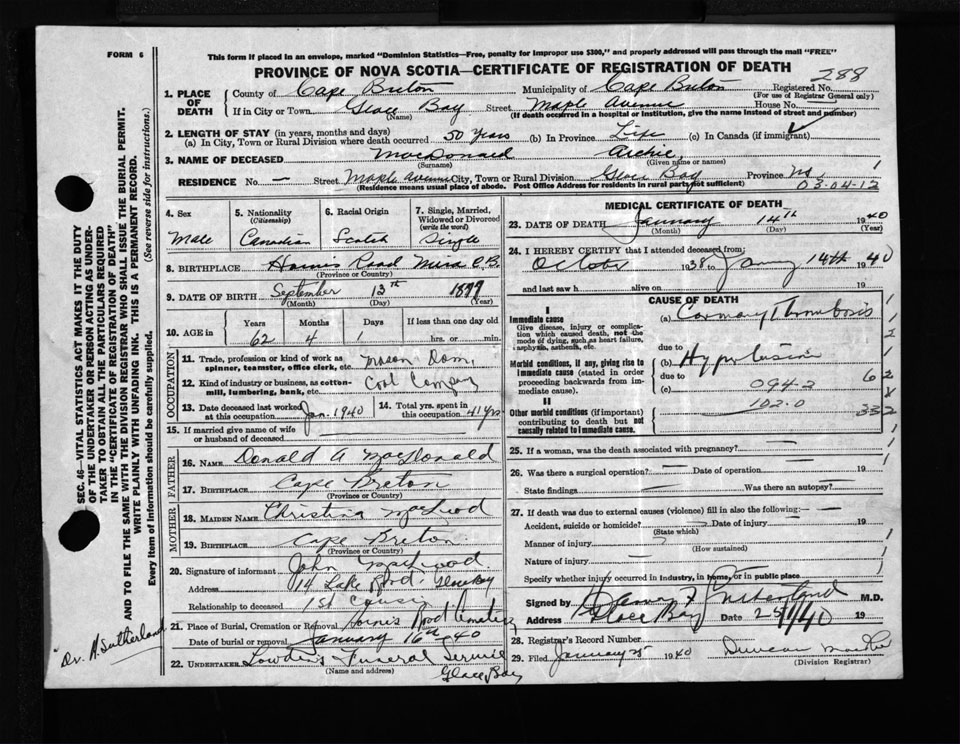 FORM 6
This form if placed in an envelope, marked "Dominion Statistics—Free, penalty for improper use $300," and properly addressed will pass through the mail "FREE"
PROVINCE OF NOVA SCOTIA—CERTIFICATE OF REGISTRATION OF DEATH
288
1. PLACE OF DEATH
County of Cape Breton Municipality of Cape Breton Registered No.
(For use of Registrar General only)
If in City or Town Glace Bay Street Maple Avenue House No.
(Name) (If death occurred in a hospital or institution, give the name instead of street and number)
2. LENGTH OF STAY (in years, months and days)
(a) In City, Town or Rural Division where death occurred 50 years (b) In Province Life (c) In Canada (if immigrant)
3. NAME OF DECEASED MacDonald Archie
(Surname) (Given name or names)
RESIDENCE No. — Street Maple Avenue City, Town or Rural Division Glace Bay Province NS 1
(Residence means usual place of abode. Post Office Address for residents in rural parts not sufficient) 03-04-12
4. Sex 5. Nationality (Citizenship) 6. Racial Origin 7. Single, Married, Widowed or Divorced (write the word)
Male Canadian Scotch Single
8. BIRTHPLACE Horne's Road Mira C.B.
(Province or Country)
9. DATE OF BIRTH September 13th 1877
(Month) (Day) (Year)
10. AGE in Years Months Days If less than one day old
62 4 1 hrs. or min.
OCCUPATION
11. Trade, profession or kind of work as spinner, teamster, office clerk, etc. Mason Dom.
12. Kind of industry or business, as cotton-mill, lumbering, bank, etc. Coal Company
13. Date deceased last worked at this occupation Jan. 1940 14. Total yrs. spent in this occupation 41 yrs
15. If married give name of wife or husband of deceased
FATHER
16. NAME Donald A MacDonald
17. BIRTHPLACE Cape Breton
(Province or Country)
MOTHER
18. MAIDEN NAME Christina MacLeod
19. BIRTHPLACE Cape Breton
(Province or Country)
20. Signature of informant John
Address 14 Lake Road Glace Bay
Relationship to deceased 1st Cousin
21. Place of Burial, Cremation or Removal Horne's Road Cemetery
Date of burial or removal January 16th 40
22. UNDERTAKER Lowden's Funeral Service
(Name and address) Glace Bay
MEDICAL CERTIFICATE OF DEATH
23. DATE OF DEATH January 14th 1940
(Month) (Day) (Year)
24. I HEREBY CERTIFY that I attended deceased from:
October 1938 to Jany 14th 1940
and last saw h alive on 19
CAUSE OF DEATH
I
Immediate cause
Give disease, injury or complication which caused death, not the mode of dying, such as heart failure, asphyxia, asthenia, etc.
(a) Coronary Thrombosis
due to
Morbid conditions, if any, giving rise to immediate cause (stated in order proceeding backwards from immediate cause).
(b)
due to 094.2
(c)
102.0
II
Other morbid conditions (if important) contributing to death but not causally related to immediate cause.
25. If a woman, was the death associated with pregnancy? —
26. Was there a surgical operation? — Date of operation —
State findings Was there an autopsy?
27. If death was due to external causes (violence) fill in also the following:—
Accident, suicide or homicide? Date of injury 19
(State which)
Manner of injury
(How sustained)
Nature of injury
Specify whether injury occurred in industry, in home, or in public place
Signed by Sutherland M.D.
Glace Bay Date 25/1/40 19
28. Registrar's Record Number
29. Filed January 25 1940 Duncan
(Division Registrar)
SEC. 46—VITAL STATISTICS ACT MAKES IT THE DUTY
OF THE UNDERTAKER OR PERSON ACTING AS UNDER-
TAKER TO OBTAIN ALL THE PARTICULARS REQUIRED
IN THE "CERTIFICATE OF REGISTRATION OF DEATH"
AND TO FILE THE SAME WITH THE DIVISION REGISTRAR WHO SHALL ISSUE THE BURIAL PERMIT.
WRITE PLAINLY WITH UNFADING INK. THIS IS A PERMANENT RECORD.
Every item of information should be carefully supplied. (See reverse side for instructions.)
Dr. H. Sutherland